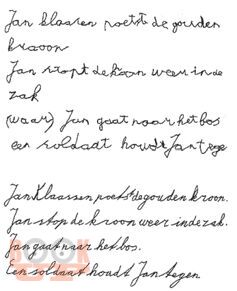 Jan klaasen poetst de gouden
kroon
Jan stopt de kroon weer in de
zak
(waar) Jan gaat naar het bos
een soldaat houdt Jan tege
Jan Klaassen poetst de gouden kroon.
Jan stop de kroon weer in de zak.
Jan gaat naar het bos.
Een soldaat houdt Jan tegen.